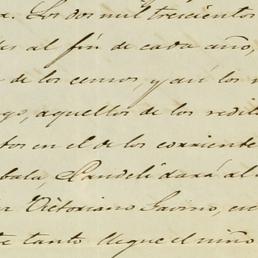 a. Los dos mil trescientos
es al fin de cada año,
de los censos, y así los
go, aquellos de los redi
tos en el de los corriente
bala, Landeli dará al
Victoriano Gavino, en
te tanto llegue el niño